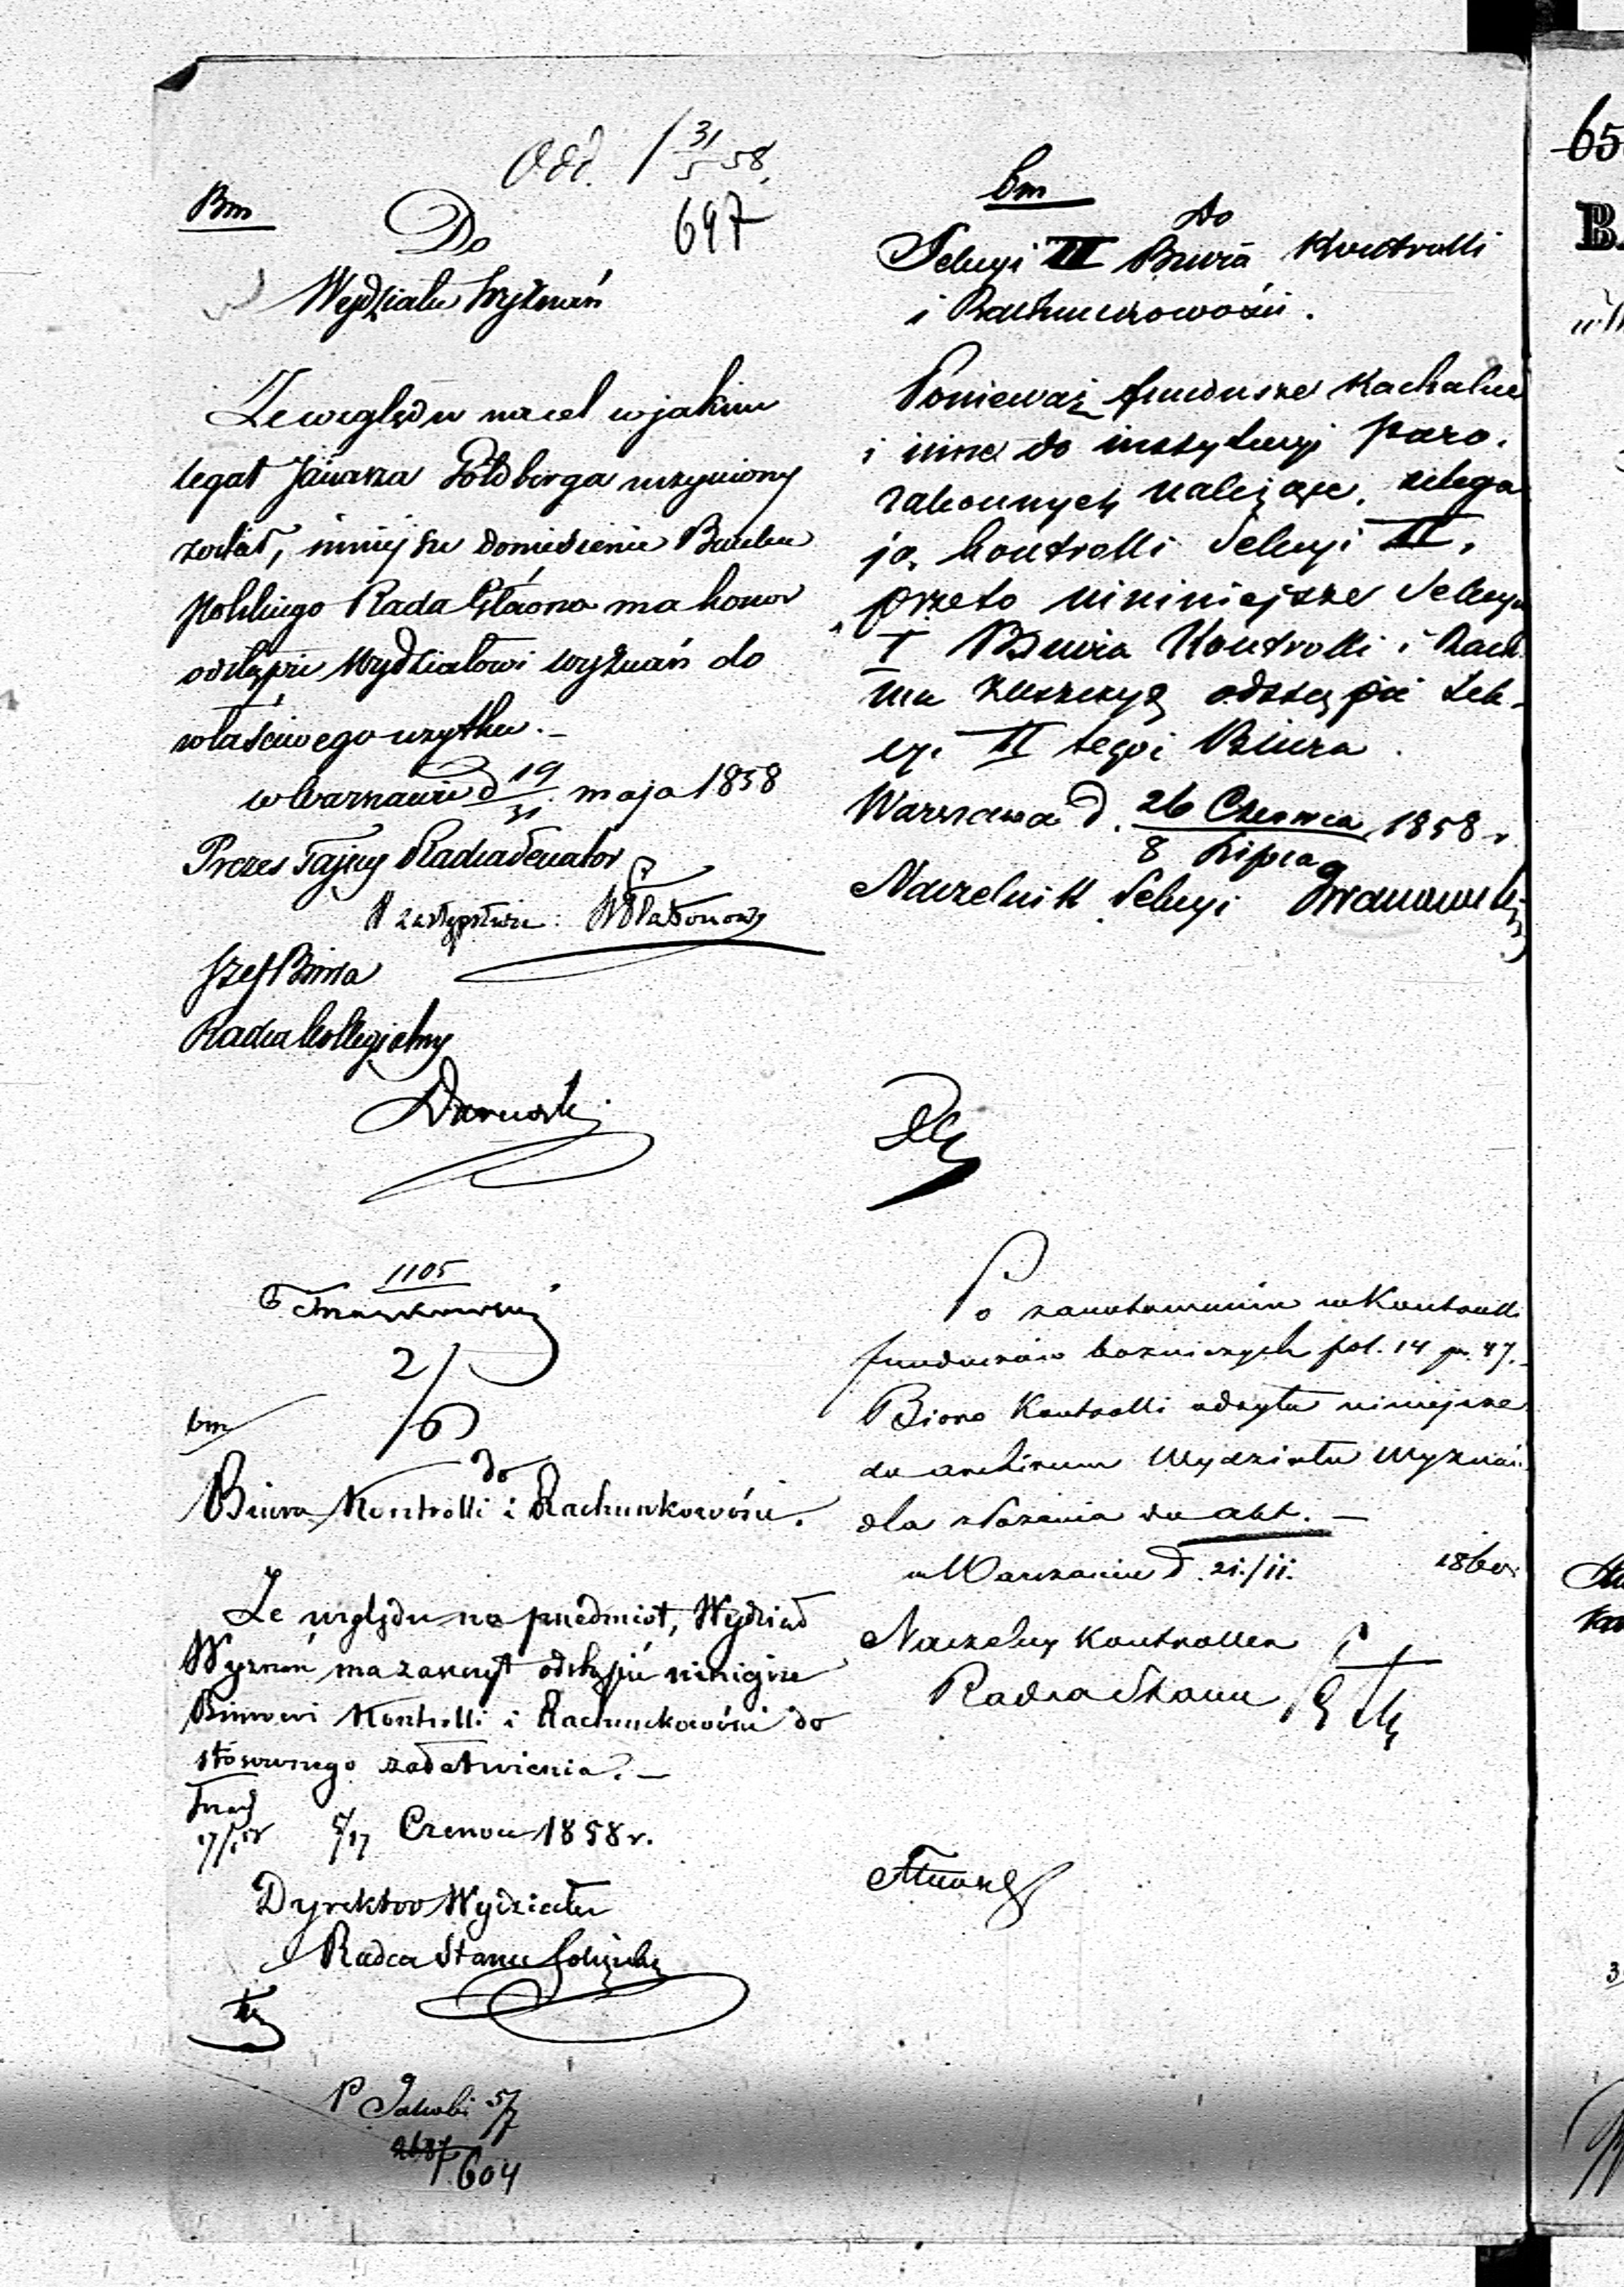 Odd. / 31/5 58.
697
Bm
Do
Wydziału Wyznań
Ze względu na cel w jakim
legat Janasza Goldberga uczyniony
został, niniejsze doniesienie Banku
Polskiego Rada Główna ma honor
odstąpić Wydziałowi Wyznań do
właściwego użytku. –
w Warszawie d 19/31 maja 1858
Prezes Tajny Radca Senator
W zastępstwie:
Szef Biura
Radca Kollegialny
1105
2/6
bm
do
Biura Kontrolli i Rachunkowości.
Ze względu na przedmiot, Wydział
Wyznań ma zaszczyt odstąpić niniejsze
Biurowi Kontrolli i Rachunkowości do
stosownego załatwienia. –
5/17 Czerwca 1858 r.
Dyrektor Wydziału
Radca Stanu
P Jakobi 5/7
2687
604
bm
Do
Sekcyi II Biura Kontrolli
i Rachunkowości.
Ponieważ fundusze Kachalne
i inne do instytucyj staro.
zakonnych należące, ulega
ją kontrolli Sekcyi II,
przeto nininiejsze Sekcya
I Biura Kontrolli i Rach.
ma zaszczyt odstąpić Sek-
cyi II tegoż Biura.
Warszawa d. 26 Czerwca / 8 Lipca 1858 r.
Naczelnik Sekcyi
Po zanotowaniu w Kontrolli
funduszów bożniczych pol. 14 p. 47. –
Biuro Kontrolli odsyła niniejsze
do archiwum Wydziału Wyznań
dla złożenia do akt. –
w Warszawie d. 21/11. 1860 r.
Naczelny Kontroller
Radca Stanu